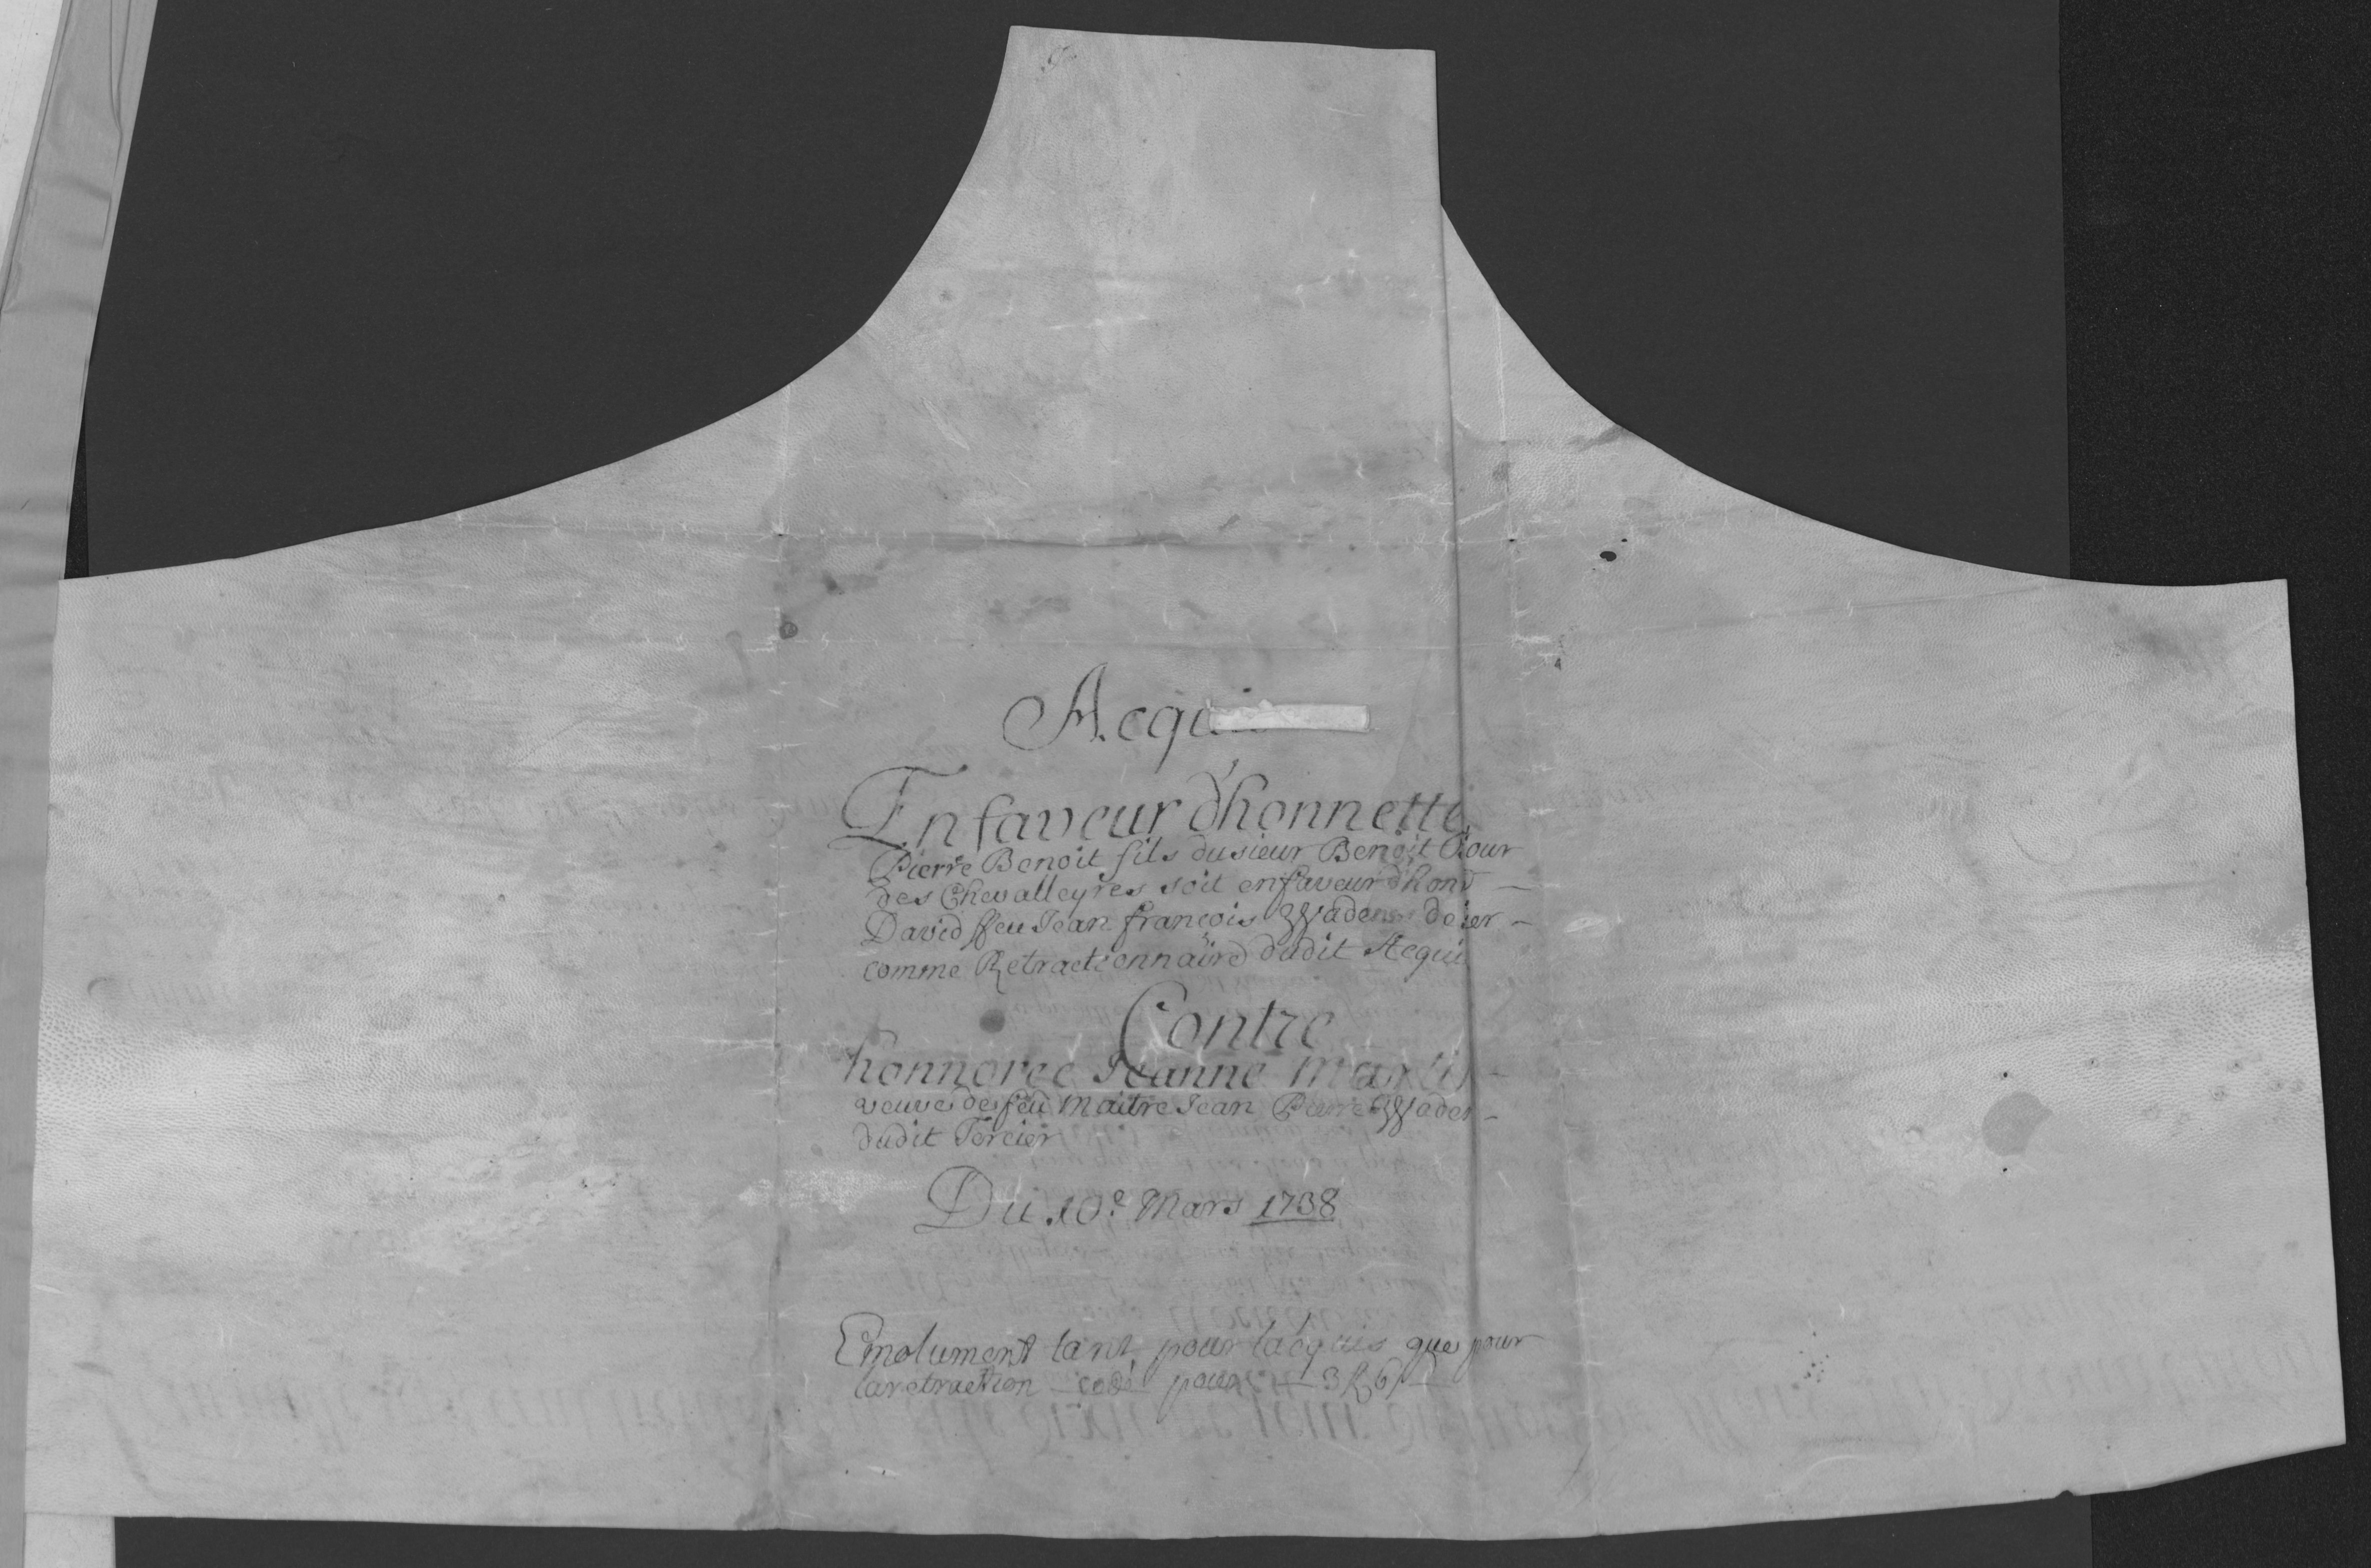 Acqui
En faveur d'honnette
Pierre Benoit fils du sieur Benoit Cour
des Chevalleyres soit en faveur d'hond
David ffeu Jean françois Wader
comme Retractionnaire dudit Acqui
Contre
honnoree Jeanne Marti
veuve de feu Maitre Jean Pierre Wader
dudit Tercier
Du 10.e Mars 1738
Emolument tant pour lacquis que pour
laretraction pour 3